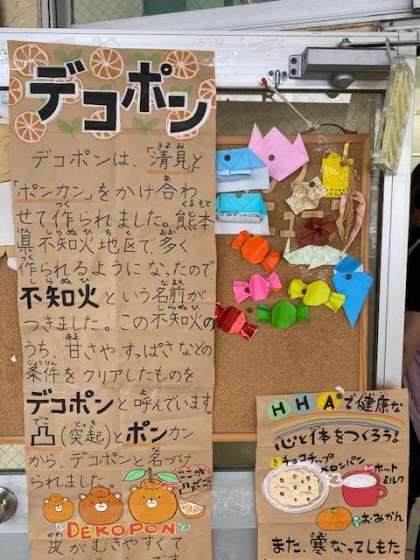 デコポン
デコポンは、「清見」と
「ポンカン」をかけ合わ
せて作られました。熊本
県不知火地区で、多く
作られるようになったので
不知火という名前が
つきました。この不知火の
うち、甘さやすっぱさなどの
条件をクリアしたものを
デコポンと呼んでいます。
凸(突起)とポンカン
から、デコポンと名づけ
られました。
DEKOPON
皮がむきやすくて
HHAで健康な
心と体をつくろう!
チョコチップ
メロンパン
ホット
ミルク
おみかん
また、寒くなってしもた